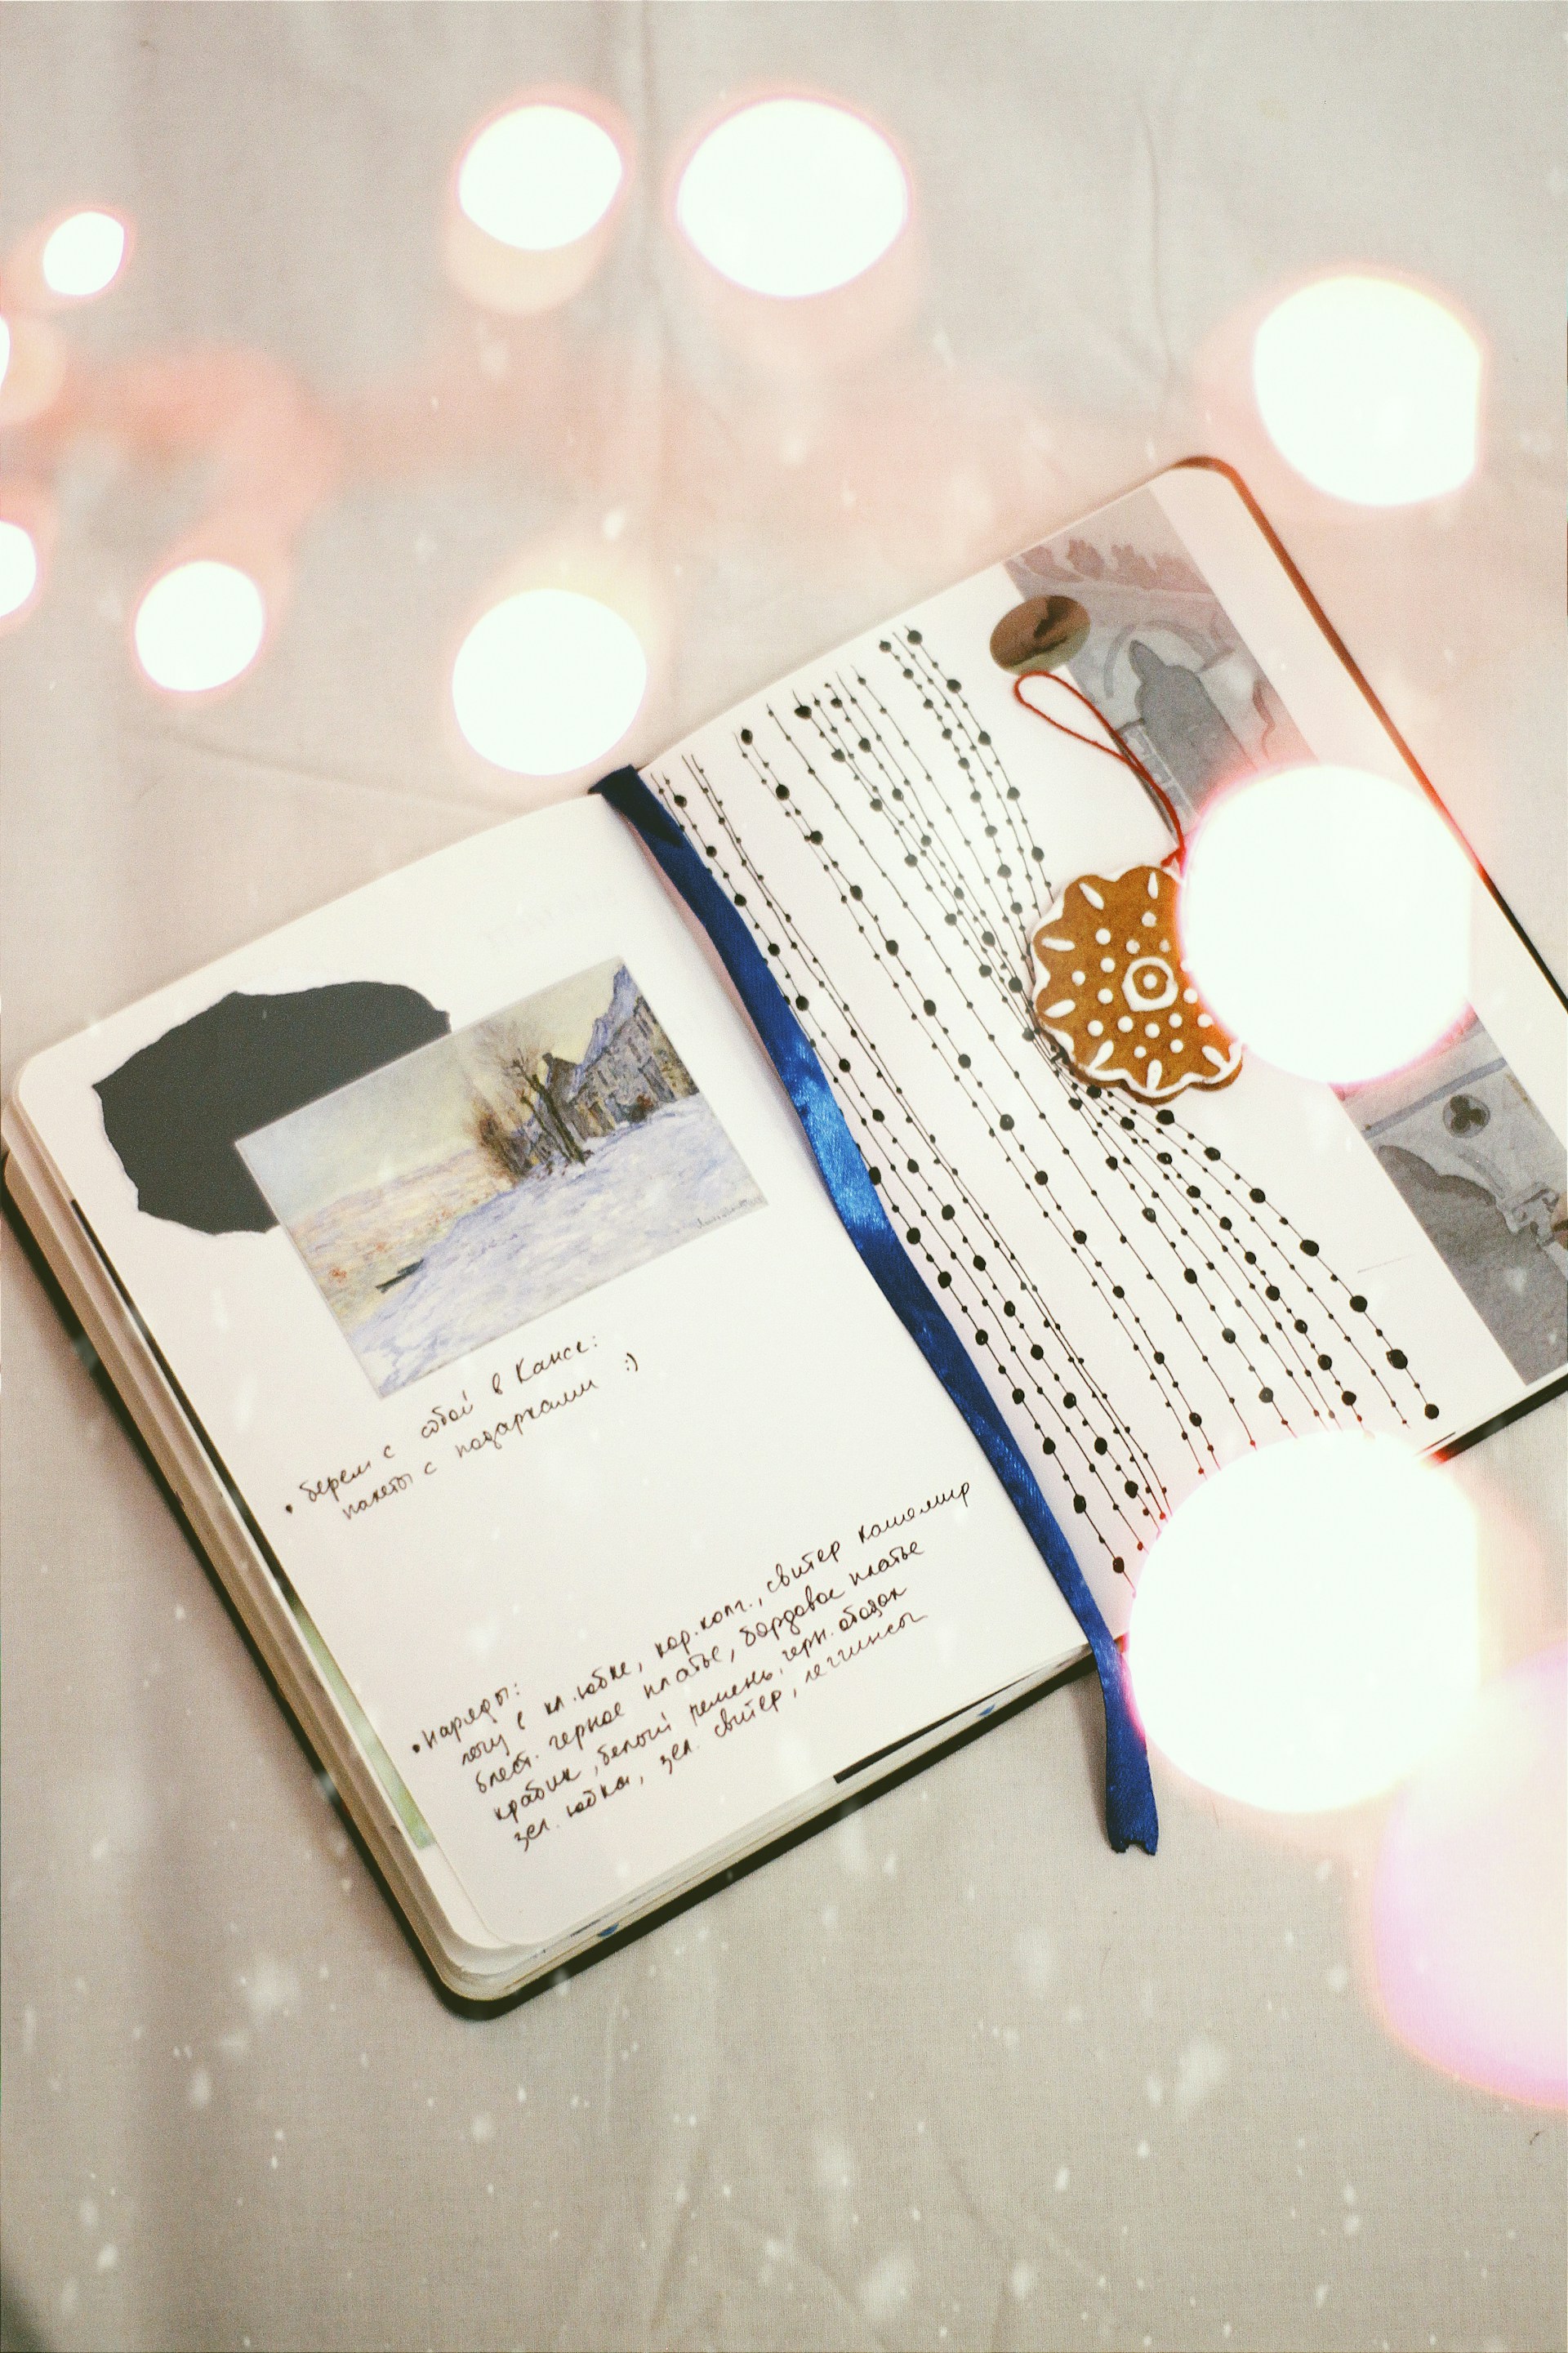 • берем с собой в Канск:
пакеты с подарками :)
• Наряды:
лонг с кл. юбке, кор. колг., свитер кашемир
блест. черное платье, бордовое платье
крабик, белый ремень, черн. ободок
зел. юбка, зел. свитер, леггинсы